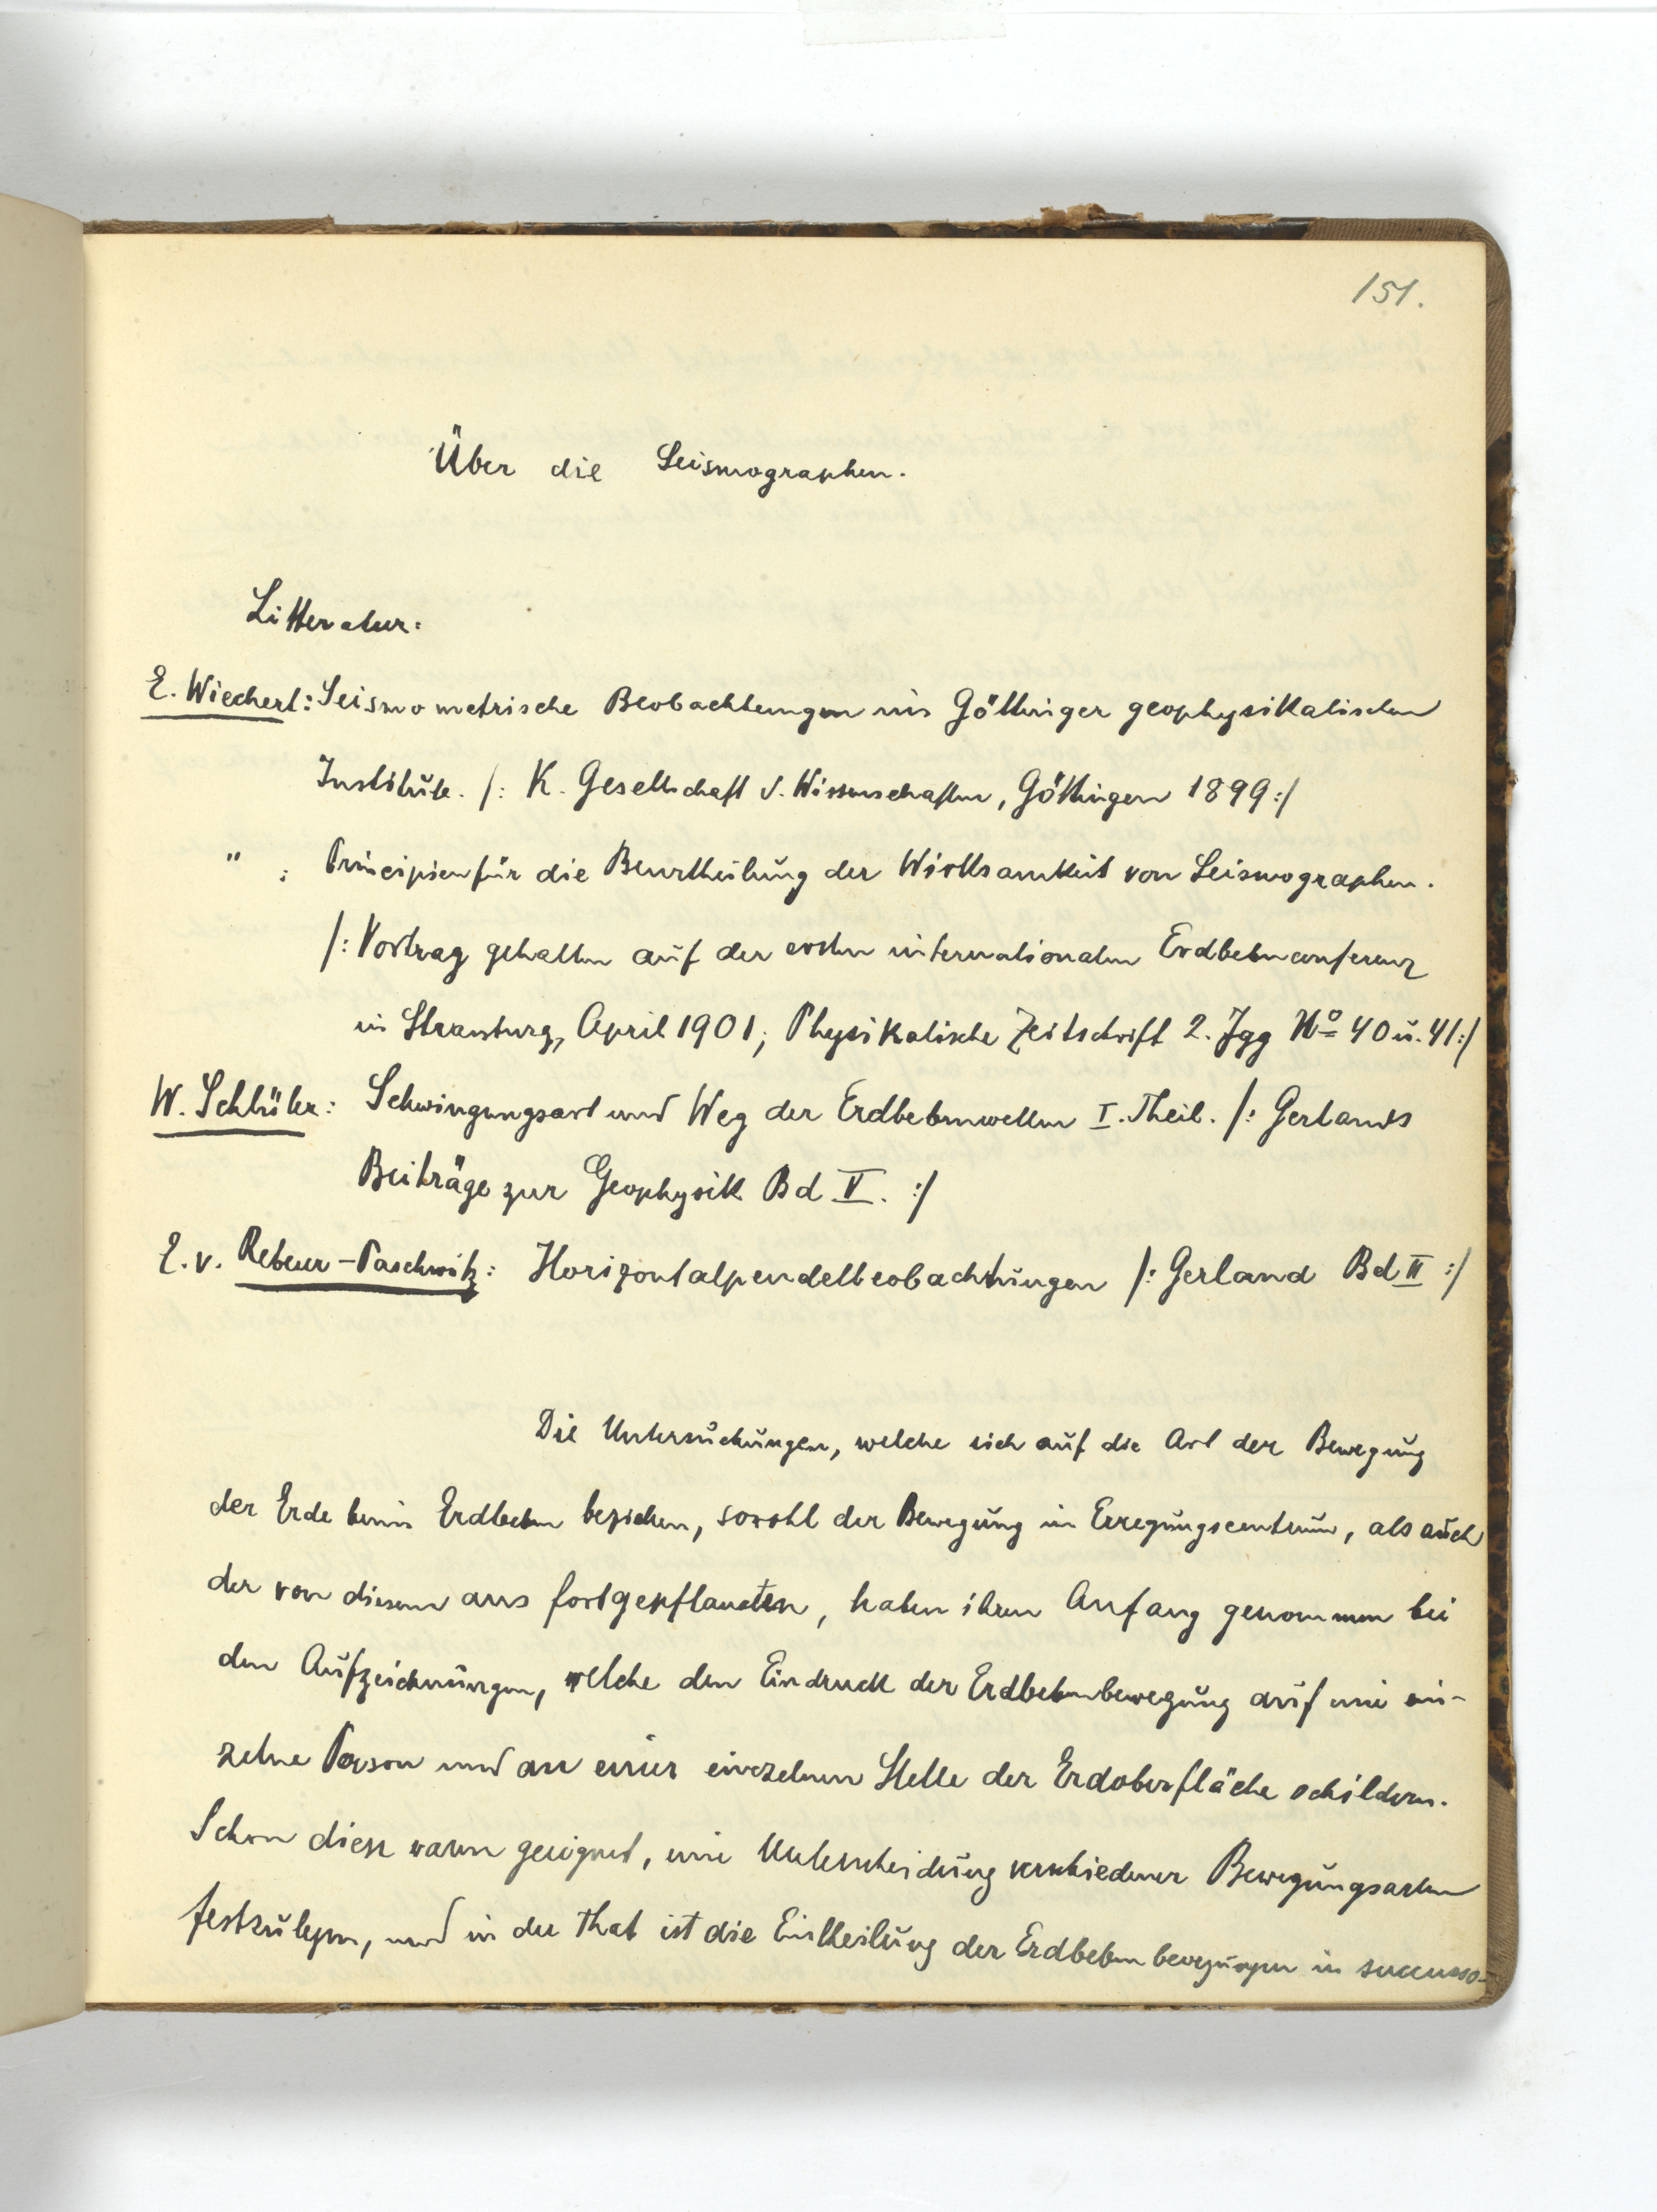 151.
Über die Seismographen.
Litteratur:
E. Wiechert: Seismometrische Beobachtungen im Göttinger geophysikalischen
Institute. /: K. Gesellschaft d. Wissenschaften, Göttingen 1899:/
" : Principien für die Beurtheilung der Wirksamkeit von Seismographen.
/: Vortrag gehalten auf der ersten internationalen Erdbebenconferenz
in Strassburg, April 1901; Physikalische Zeitschrift 2. Jgg No 40 u. 41:/
W. Schlüter: Schwingungsart und Weg der Erdbebenwellen I. Theil. /: Gerlands
Beiträge zur Geophysik Bd V. :/
E. v. Rebeur-Paschwitz: Horizontalpendelbeobachtungen /: Gerland Bd II :/
Die Untersuchungen, welche sich auf die Art der Bewegung
der Erde beim Erdbeben beziehen, sowohl der Bewegung im Erregungscentrum, als auch
der von diesem aus fortgepflanzten, haben ihren Anfang genommen bei
den Aufzeichnungen, welche den Eindruck der Erdbebenbewegung auf eine ein-
zelne Person und an einer einzelnen Stelle der Erdoberfläche schildern.
Schon diese waren geeignet, eine Unterscheidung verschiedener Bewegungsarten
festzulegen, und in der That ist die Eintheilung der Erdbebenbewegungen in succusso-